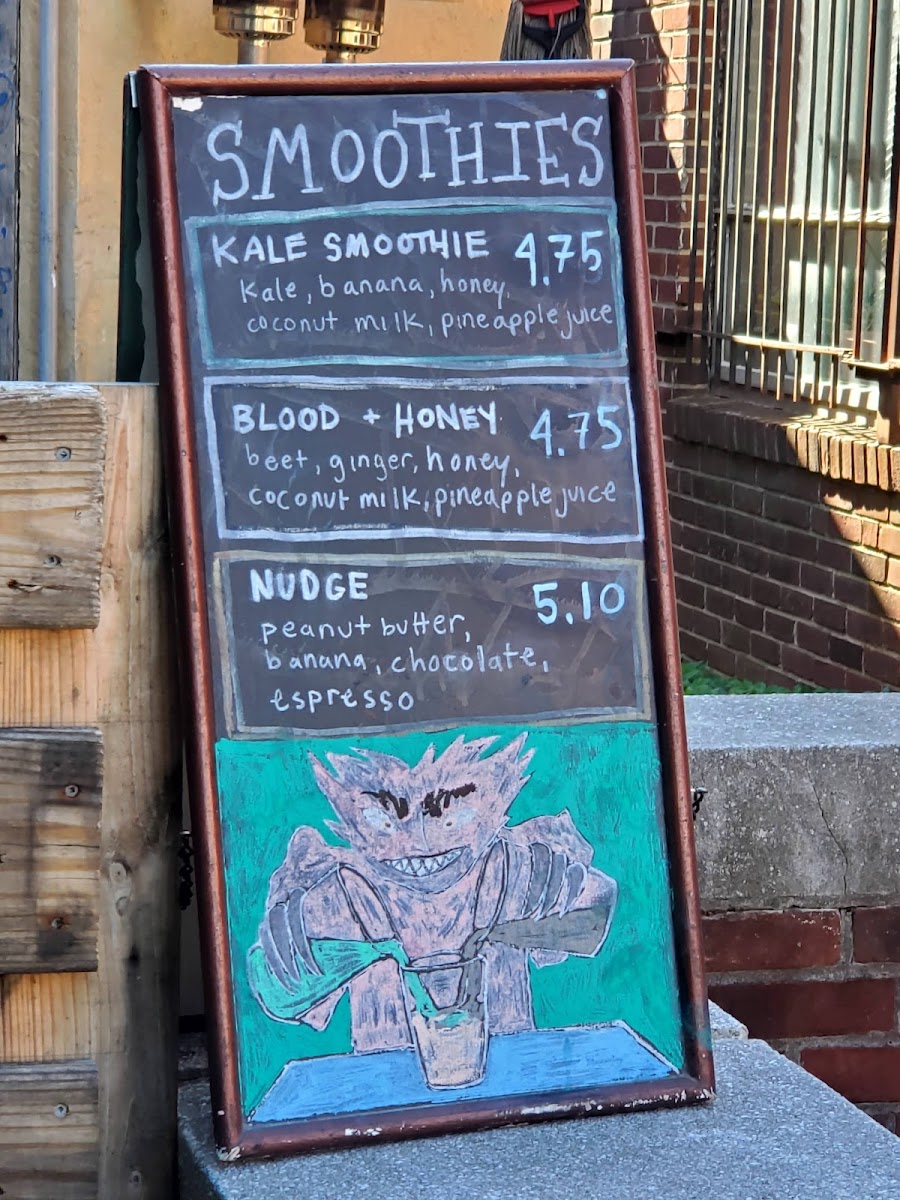 SMOOTHIES
KALE SMOOTHIE 4.75
Kale, banana, honey,
coconut milk, pineapple juice
BLOOD + HONEY 4.75
beet, ginger, honey,
coconut milk, pineapple juice
NUDGE 5.10
peanut butter,
banana, chocolate,
espresso